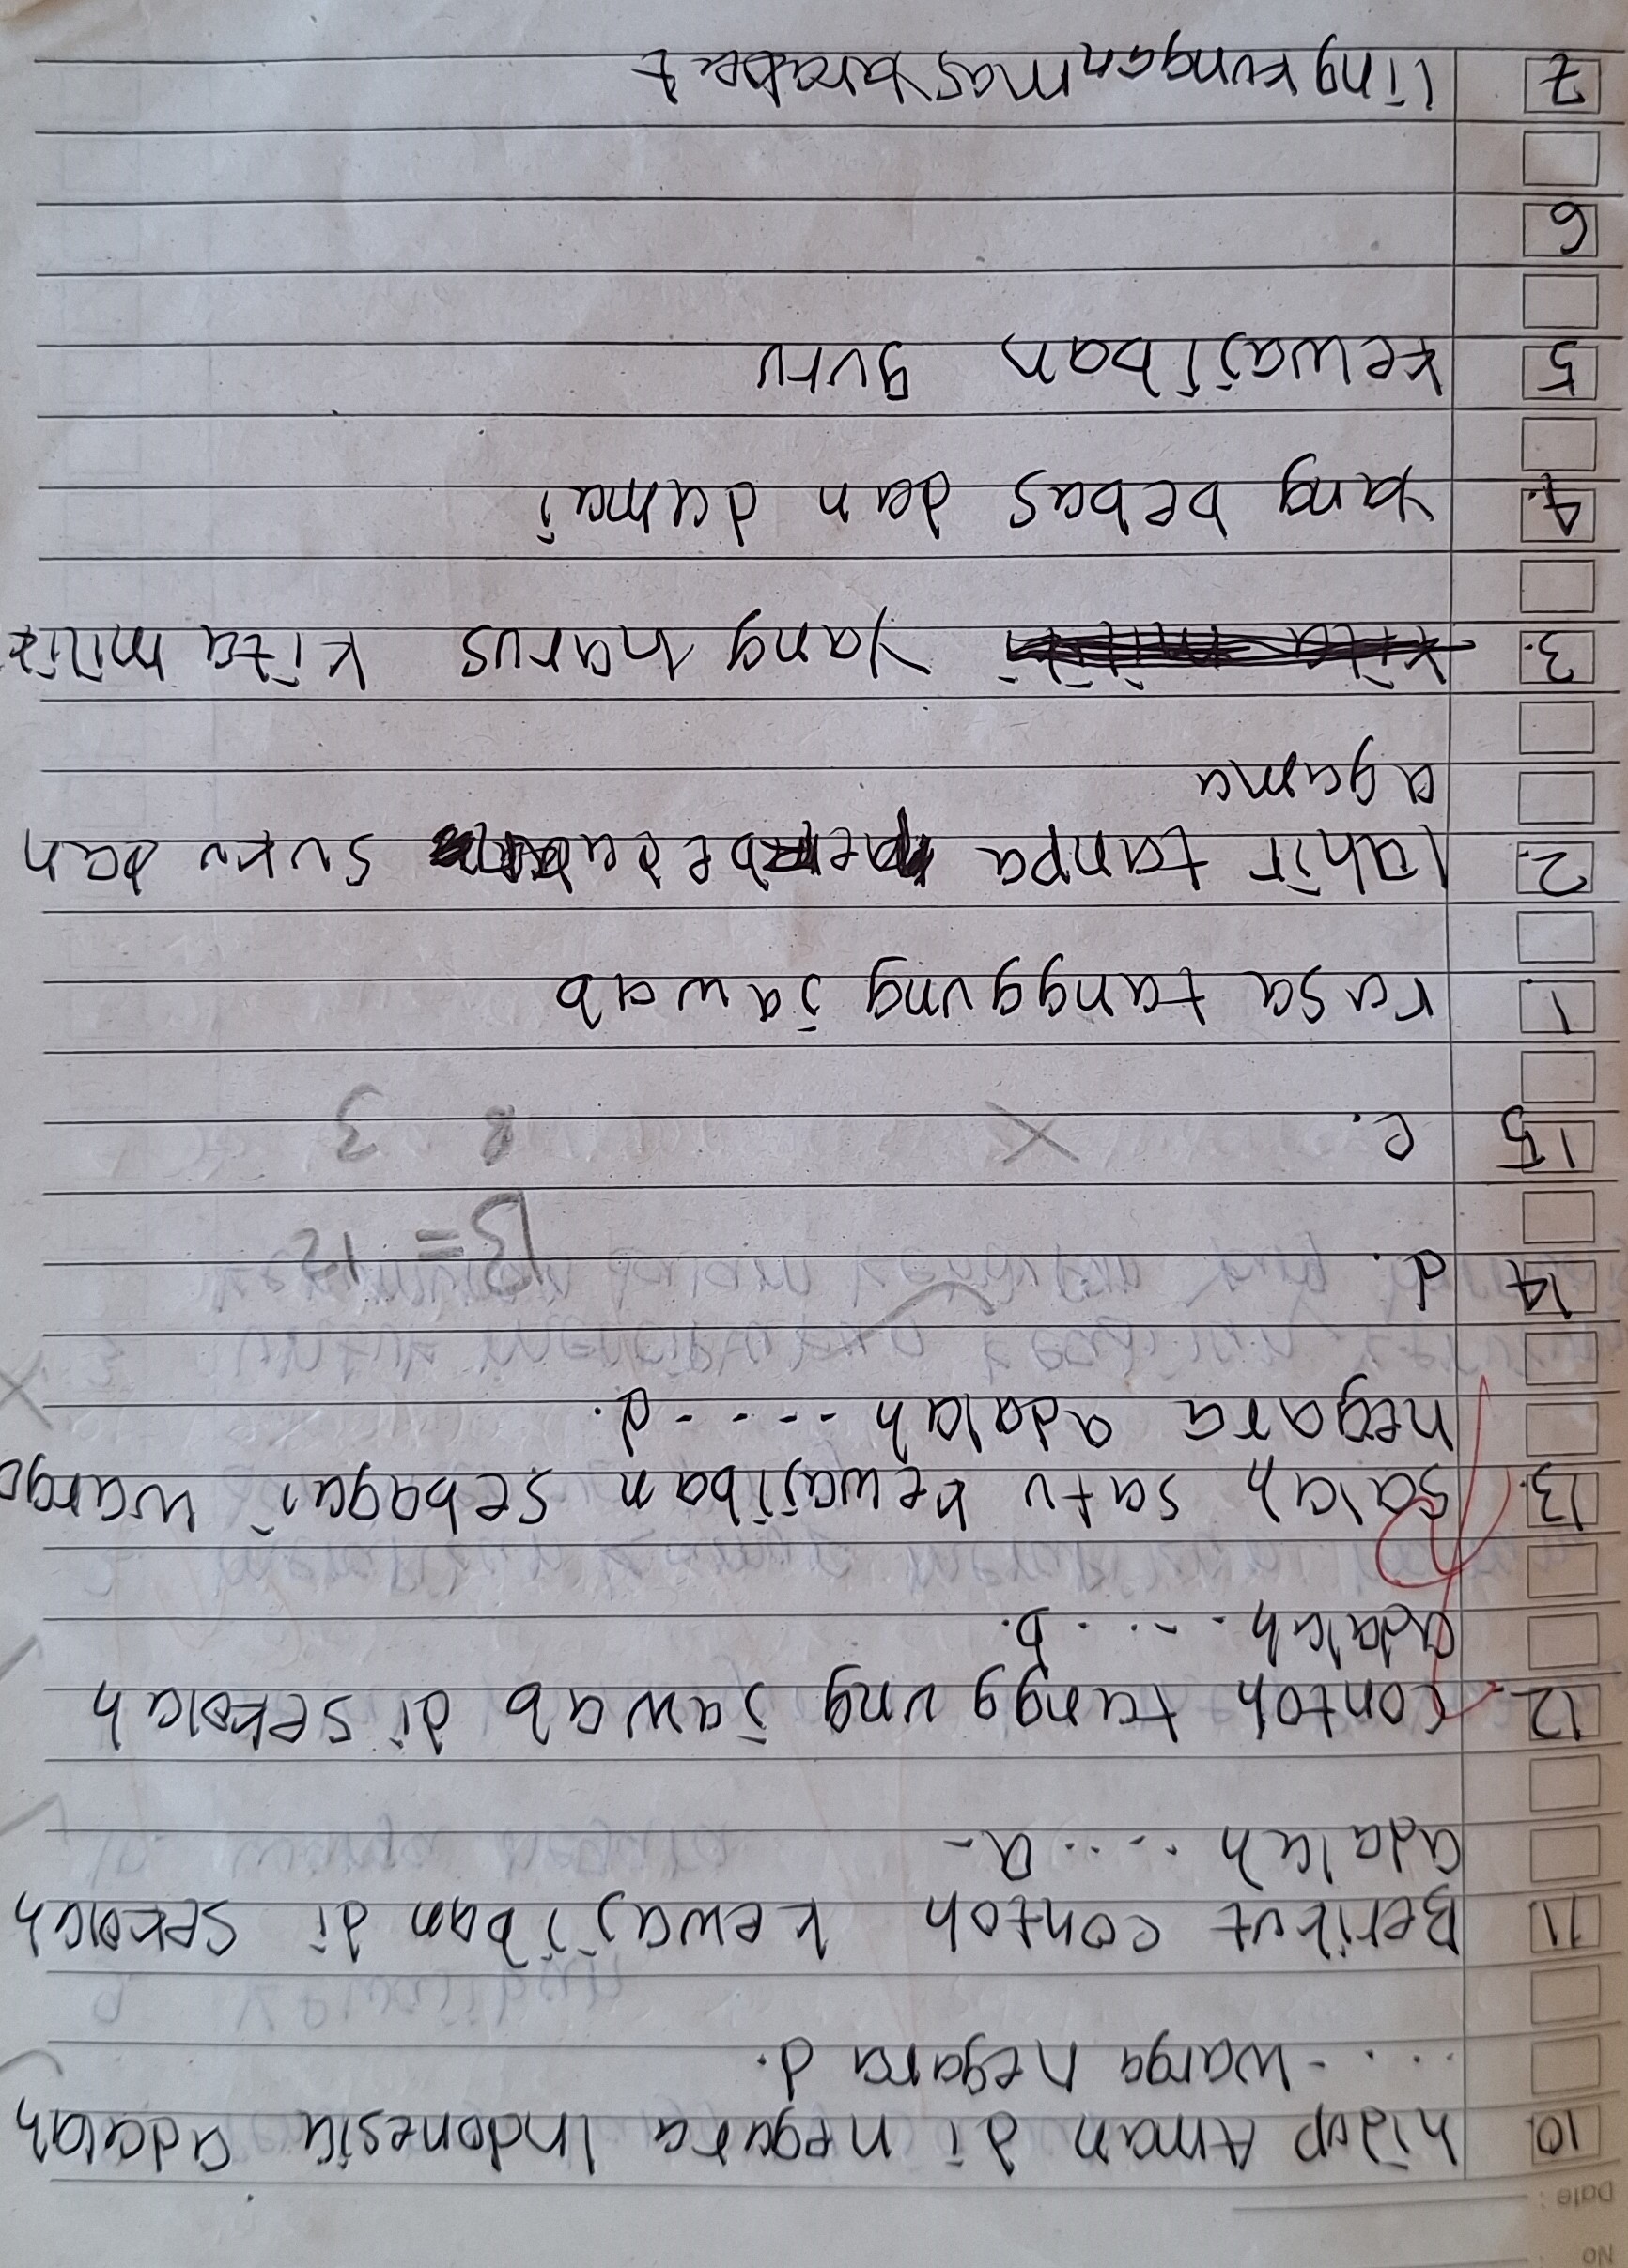 No :
Date :
10. hidup Aman di negara Indonesia adalah
.... - warga negara d.
11. Berikut contoh kewajiban di sekolah
adalah ..... a.
12. contoh tanggung jawab di sekolah
adalah ..... b.
13. salah satu kewajiban sebagai warga
negara adalah ..... d.
14 d.
B = 12
15 e.
3
1. rasa tanggung jawab
2. lahir tanpa suku dan
agama
3. yang harus kita milik
4. yang bebas dan damai
5 kewajiban guru
6
7 lingkungan masyarakat